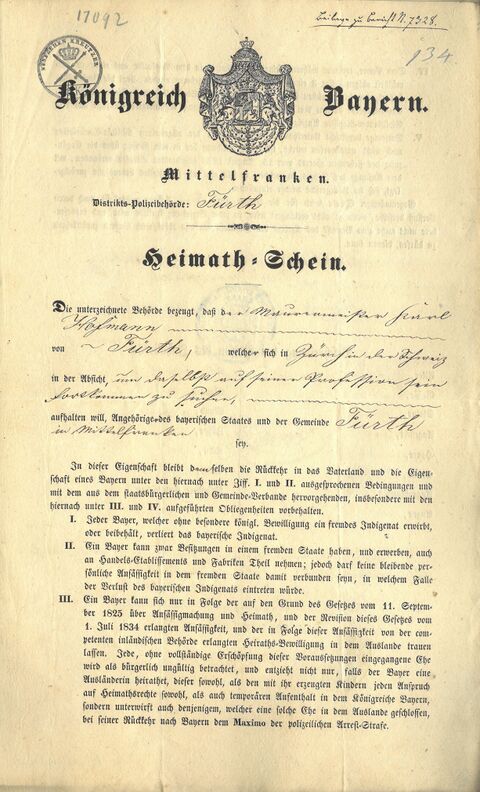 17092
Beilage zu Bericht N. 7328.
134.
Königreich Bayern.
Mittelfranken.
Distrikts-Polizeibehörde: Fürth
Heimath-Schein.
Die unterzeichnete Behörde bezeugt, daß der Maurermeister Karl
Hofmann
von Fürth, welcher sich in Zürch in der Schweiz
in der Absicht, um daselbst auf seiner Profession sein
Fortkommen zu suchen,
aufhalten will, Angehörige des bayerischen Staates und der Gemeinde Fürth
in Mittelfranken
sey.
In dieser Eigenschaft bleibt demselben die Rückkehr in das Vaterland und die Eigen-
schaft eines Bayern unter den hiernach unter Ziff. I. und II. ausgesprochenen Bedingungen und
mit dem aus dem staatsbürgerlichen und Gemeinde-Verbande hervorgehenden, insbesondere mit den
hiernach unter III. und IV. aufgeführten Obliegenheiten vorbehalten.
I. Jeder Bayer, welcher ohne besondere königl. Bewilligung ein fremdes Indigenat erwirbt,
oder beibehält, verliert das bayerische Indigenat.
II. Ein Bayer kann zwar Besitzungen in einem fremden Staate haben, und erwerben, auch
an Handels-Etablissements und Fabriken Theil nehmen; jedoch darf keine bleibende per-
sönliche Ansäßigkeit in dem fremden Staate damit verbunden seyn, in welchem Falle
der Verlust des bayerischen Indigenats eintreten würde.
III. Ein Bayer kann sich nur in Folge der auf den Grund des Gesetzes vom 11. Septem-
ber 1825 über Ansäßigmachung und Heimath, und der Revision dieses Gesetzes vom
1. Juli 1834 erlangten Ansäßigkeit, und der in Folge dieser Ansäßigkeit von der com-
petenten inländischen Behörde erlangten Heiraths-Bewilligung in dem Auslande trauen
lassen. Jede, ohne vollständige Erschöpfung dieser Voraussetzungen eingegangene Ehe
wird als bürgerlich ungültig betrachtet, und entzieht nicht nur, falls der Bayer eine
Ausländerin heirathet, dieser sowohl, als den mit ihr erzeugten Kindern jeden Anspruch
auf Heimathsrechte sowohl, als auch temporären Aufenthalt in dem Königreiche Bayern,
sondern unterwirft auch denjenigen, welcher eine solche Ehe in dem Auslande geschlossen,
bei seiner Rückkehr nach Bayern dem Maximo der polizeilichen Arrest-Strafe.